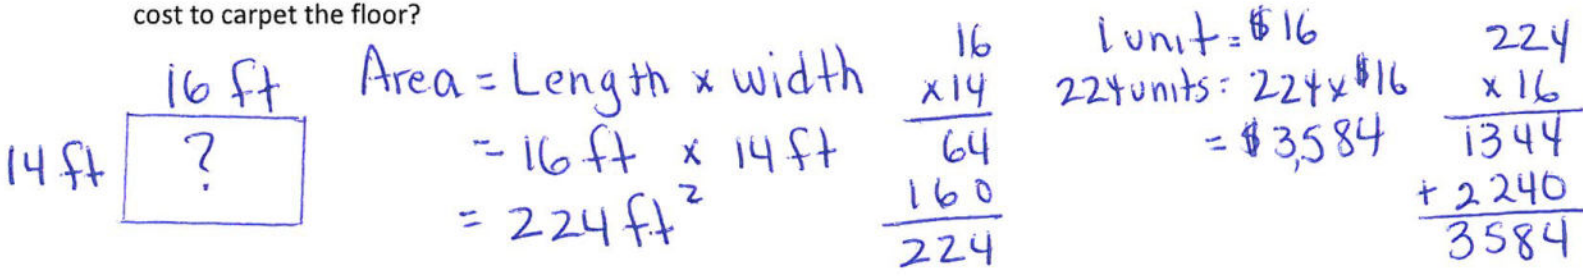 cost to carpet the floor?
16 ft
14 ft
?
Area = Length x width
= 16 ft x 14 ft
= 224 ft²
16
x14
64
160
224
1 unit = $16
224 units = 224 x $16
= $3,584
224
x 16
1344
+ 2240
3584